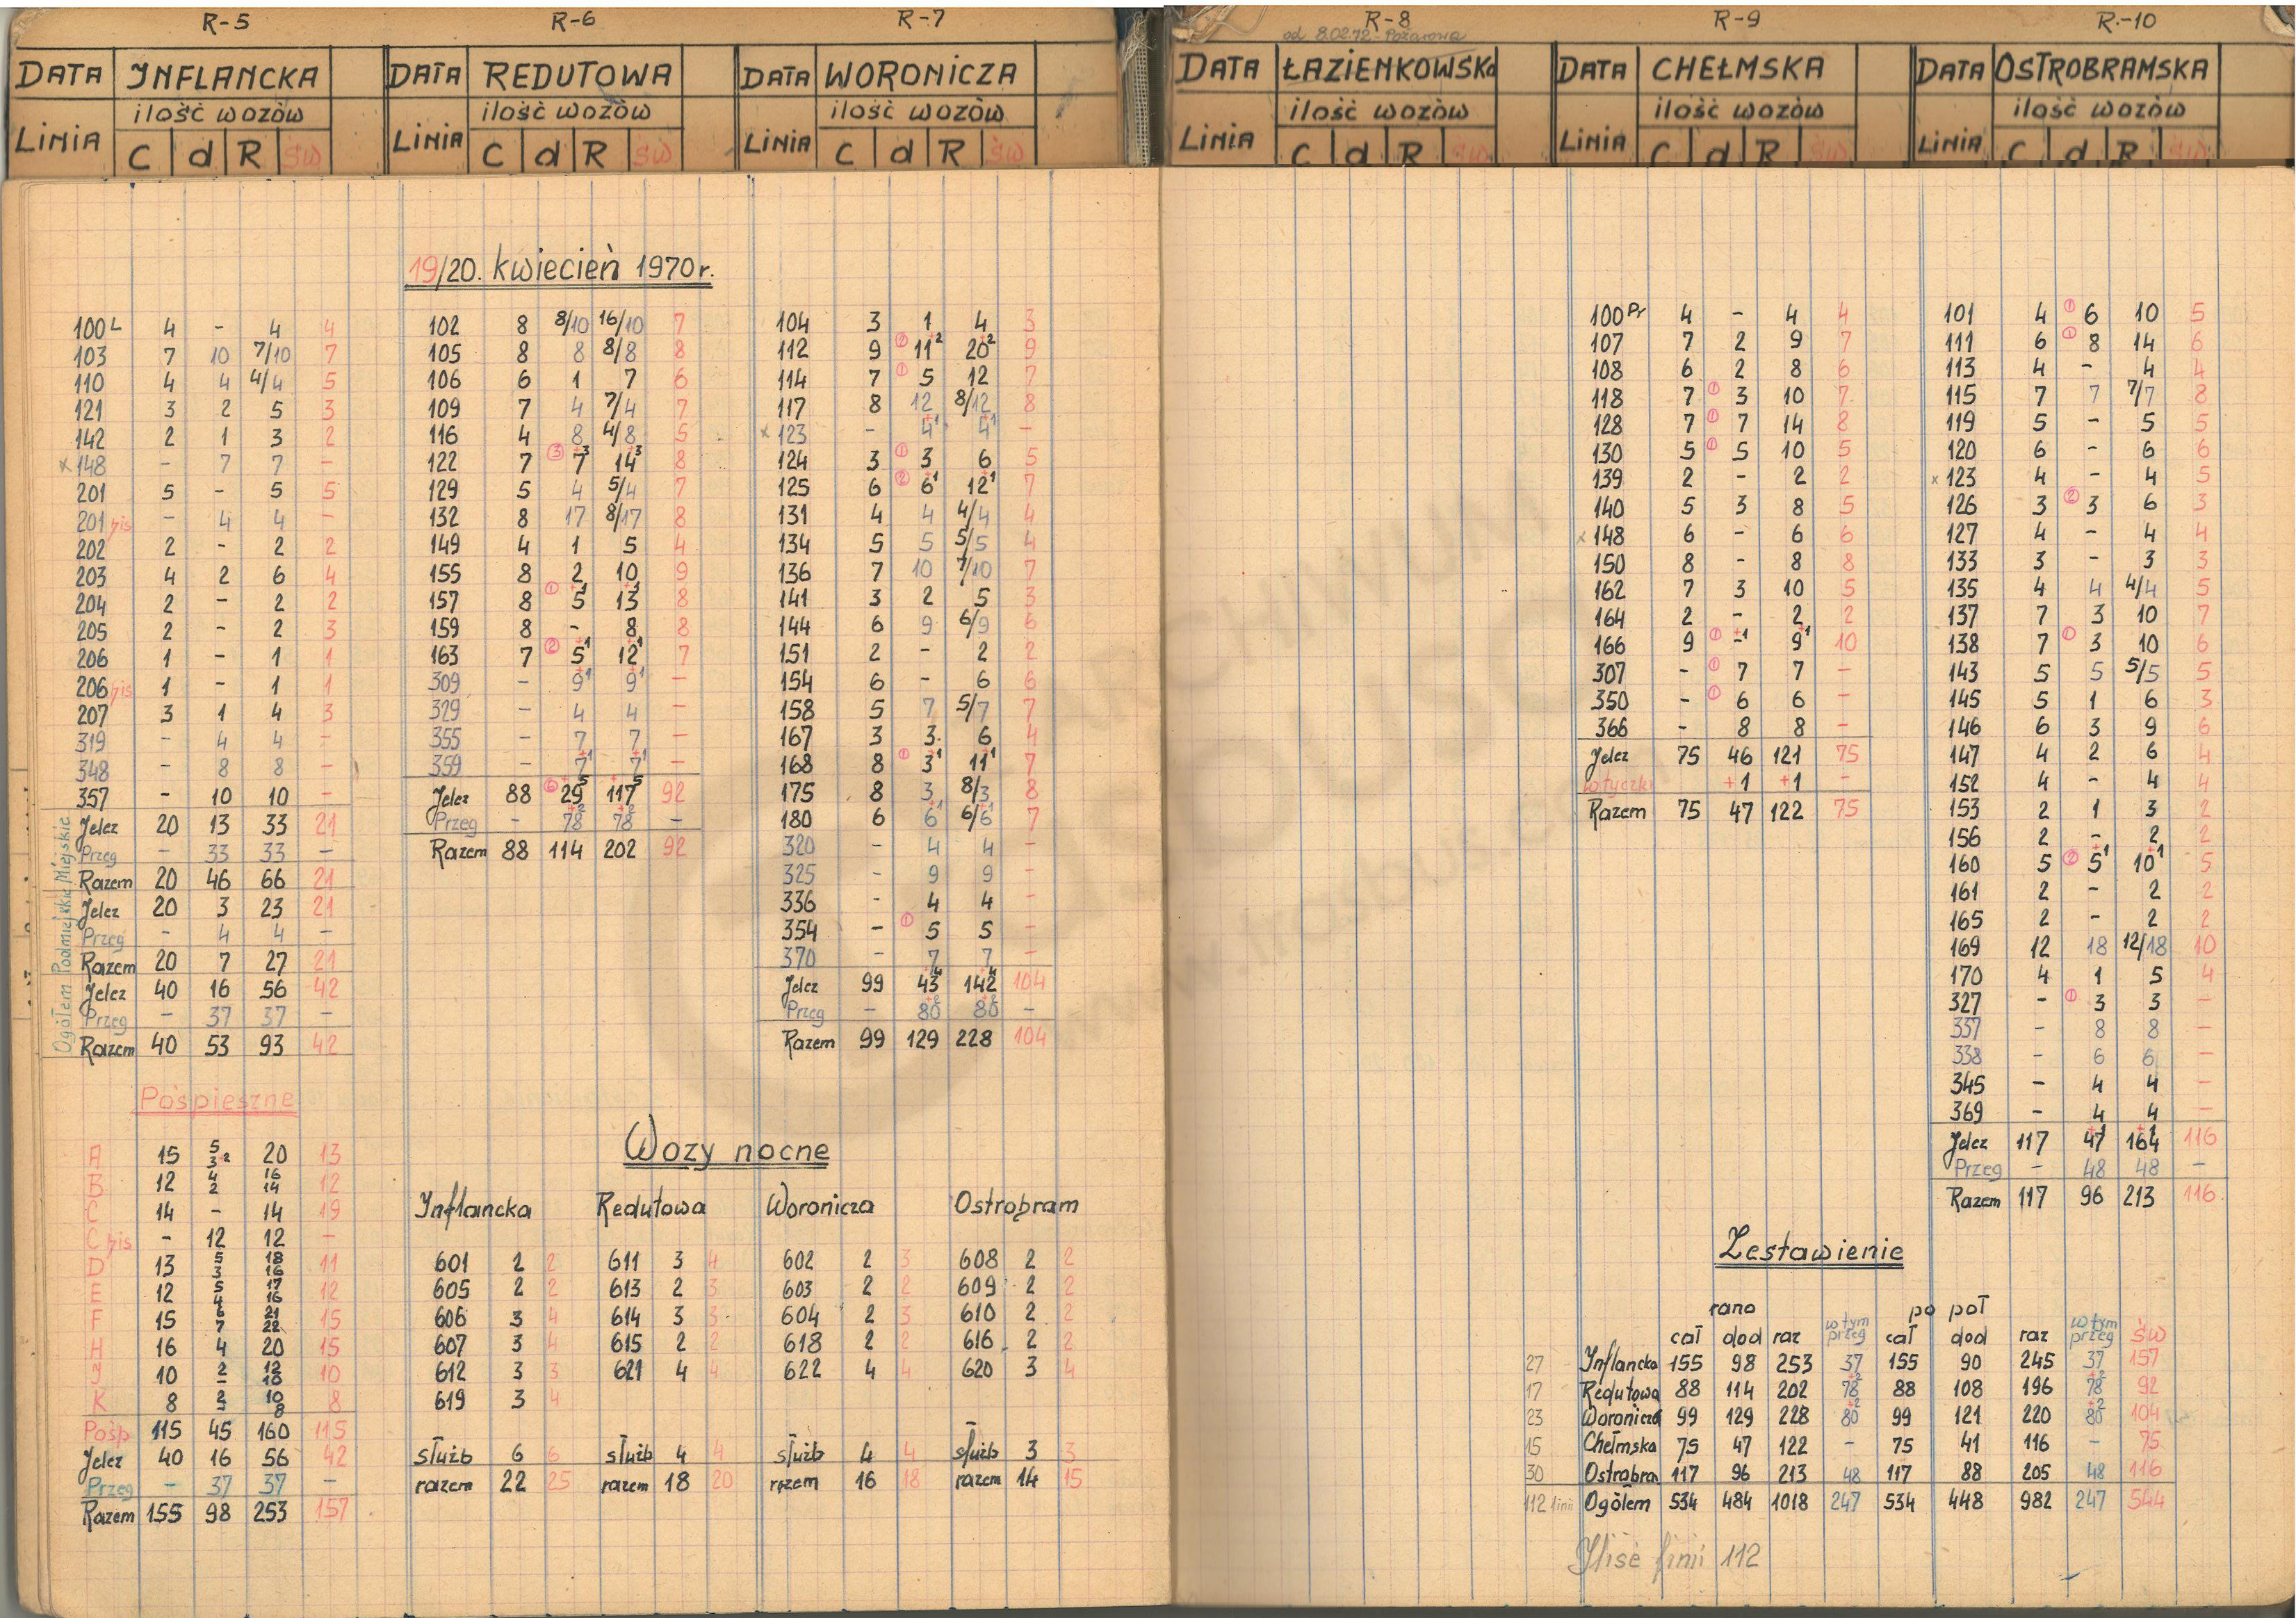 R-5
DATA INFLANCKA
ilość wozów
LINIA C d R św
100L 4 - 4 4
103 7 10 7/10 7
110 4 4 4/4 5
121 3 2 5 3
142 2 1 3 2
x 148 - 7 7 -
201 5 - 5 5
201 bis - 4 4 -
202 2 - 2 2
203 4 2 6 4
204 2 - 2 2
205 2 - 2 3
206 1 - 1 1
206 bis 1 - 1 1
207 3 1 4 3
319 - 4 4 -
348 - 8 8 -
357 - 10 10 -
Miejskie
Jelcz 20 13 33 21
Przeg - 33 33 -
Razem 20 46 66 21
Podmiejskie
Jelcz 20 3 23 21
Przeg - 4 4 -
Razem 20 7 27 21
Ogółem
Jelcz 40 16 56 42
Przeg - 37 37 -
Razem 40 53 93 42
Pośpieszne
A 15 5/3+2 20 13
B 12 4/2 16/14 12
C 14 - 14 19
C bis - 12 12 -
D 13 5/3 18/16 11
E 12 5/4 17/16 12
F 15 6/7 21/22 15
H 16 4 20 15
J 10 2/- 12/18 10
K 8 2/- 10/8 8
Pośp 115 45 160 115
Jelcz 40 16 56 42
Przeg - 37 37 -
Razem 155 98 253 157
R-6
DATA REDUTOWA
ilość wozów
LINIA C d R św
19/20. kwiecień 1970 r.
102 8 8/10 16/10 7
105 8 8 8/8 8
106 6 1 7 6
109 7 4 7/4 7
116 4 8 4/8 5
122 7 ③ 7+3 14+3 8
129 5 4 5/4 7
132 8 17 8/17 8
149 4 1 5 4
155 8 2 10 9
157 8 ① 5+1 13+1 8
159 8 - 8 8
163 7 ② 5+1 12+1 7
309 - 9+1 9+1 -
329 - 4 4 -
355 - 7 7 -
359 - 7+1 7+1 -
Jelcz 88 ⑥ 29+5 117+5 92
Przeg - 78+2 78+2 -
Razem 88 114 202 92
R-7
DATA WORONICZA
ilość wozów
LINIA C d R św
104 3 1 4 3
112 9 ② 11+2 20+2 9
114 7 ① 5 12 7
117 8 12 8/12 8
x 123 - 4+1 4+1 -
124 3 ① 3 6 5
125 6 ② 6+1 12+1 7
131 4 4 4/4 4
134 5 5 5/5 4
136 7 10 7/10 7
141 3 2 5 3
144 6 9 6/9 6
151 2 - 2 2
154 6 - 6 6
158 5 7 5/7 7
167 3 3 6 4
168 8 ① 3+1 11+1 7
175 8 3 8/3 8
180 6 6+1 6/6+1 7
320 - 4 4 -
325 - 9 9 -
336 - 4 4 -
354 - ① 5 5 -
370 - 7 7 -
Jelcz 99 43+4 142+4 104
Przeg - 80+2 80+2 -
Razem 99 129 228 104
Wozy nocne
Inflancka Redutowa Woronicza Ostrobram
601 2 2 611 3 4 602 2 3 608 2 2
605 2 2 613 2 3 603 2 2 609 2 2
606 3 4 614 3 3 604 2 3 610 2 2
607 3 4 615 2 2 618 2 2 616 2 2
612 3 3 621 4 4 622 4 4 620 3 4
619 3 4
służb 6 6 służb 4 4 służb 4 4 służb 3 3
razem 22 25 razem 18 20 razem 16 18 razem 14 15
R-8
od 8.02.72 - Pożarowa
DATA ŁAZIENKOWSKA
ilość wozów
LINIA C d R św
R-9
DATA CHEŁMSKA
ilość wozów
LINIA C d R św
100Pr 4 - 4 4
107 7 2 9 7
108 6 2 8 6
118 7 ① 3 10 7
128 7 ① 7 14 8
130 5 ① 5 10 5
139 2 - 2 2
140 5 3 8 5
x 148 6 - 6 6
150 8 - 8 8
162 7 3 10 5
164 2 - 2 2
166 9 ① -+1 9+1 10
307 - ① 7 7 -
350 - ① 6 6 -
366 - 8 8 -
Jelcz 75 46 121 75
wtyczki +1 +1 -
Razem 75 47 122 75
R-10
DATA OSTROBRAMSKA
ilość wozów
LINIA C d R św
101 4 ① 6 10 5
111 6 ① 8 14 6
113 4 - 4 4
115 7 7 7/7 8
119 5 - 5 5
120 6 - 6 6
x 123 4 - 4 5
126 3 ② 3 6 3
127 4 - 4 4
133 3 - 3 3
135 4 4 4/4 5
137 7 3 10 7
138 7 ① 3 10 6
143 5 5 5/5 5
145 5 1 6 3
146 6 3 9 6
147 4 2 6 4
152 4 - 4 4
153 2 1 3 2
156 2 - 2 2
160 5 ② 5+1 10+1 5
161 2 - 2 2
165 2 - 2 2
169 12 18 12/18 10
170 4 1 5 4
327 - ① 3 3 -
337 - 8 8 -
338 - 6 6 -
345 - 4 4 -
369 - 4 4 -
Jelcz 117 47+1 164+1 116
Przeg - 48 48 -
Razem 117 96 213 116
Zestawienie
rano po poł
cał dod raz w tym przeg cał dod raz w tym przeg św
27 Inflancka 155 98 253 37 155 90 245 37 157
17 Redutowa 88 114 202 78+2 88 108 196 78+2 92
23 Woronicza 99 129 228 80+2 99 121 220 80+2 104
15 Chełmska 75 47 122 - 75 41 116 - 75
30 Ostrobra 117 96 213 48 117 88 205 48 116
112 linii Ogółem 534 484 1018 247 534 448 982 247 544
linii 112